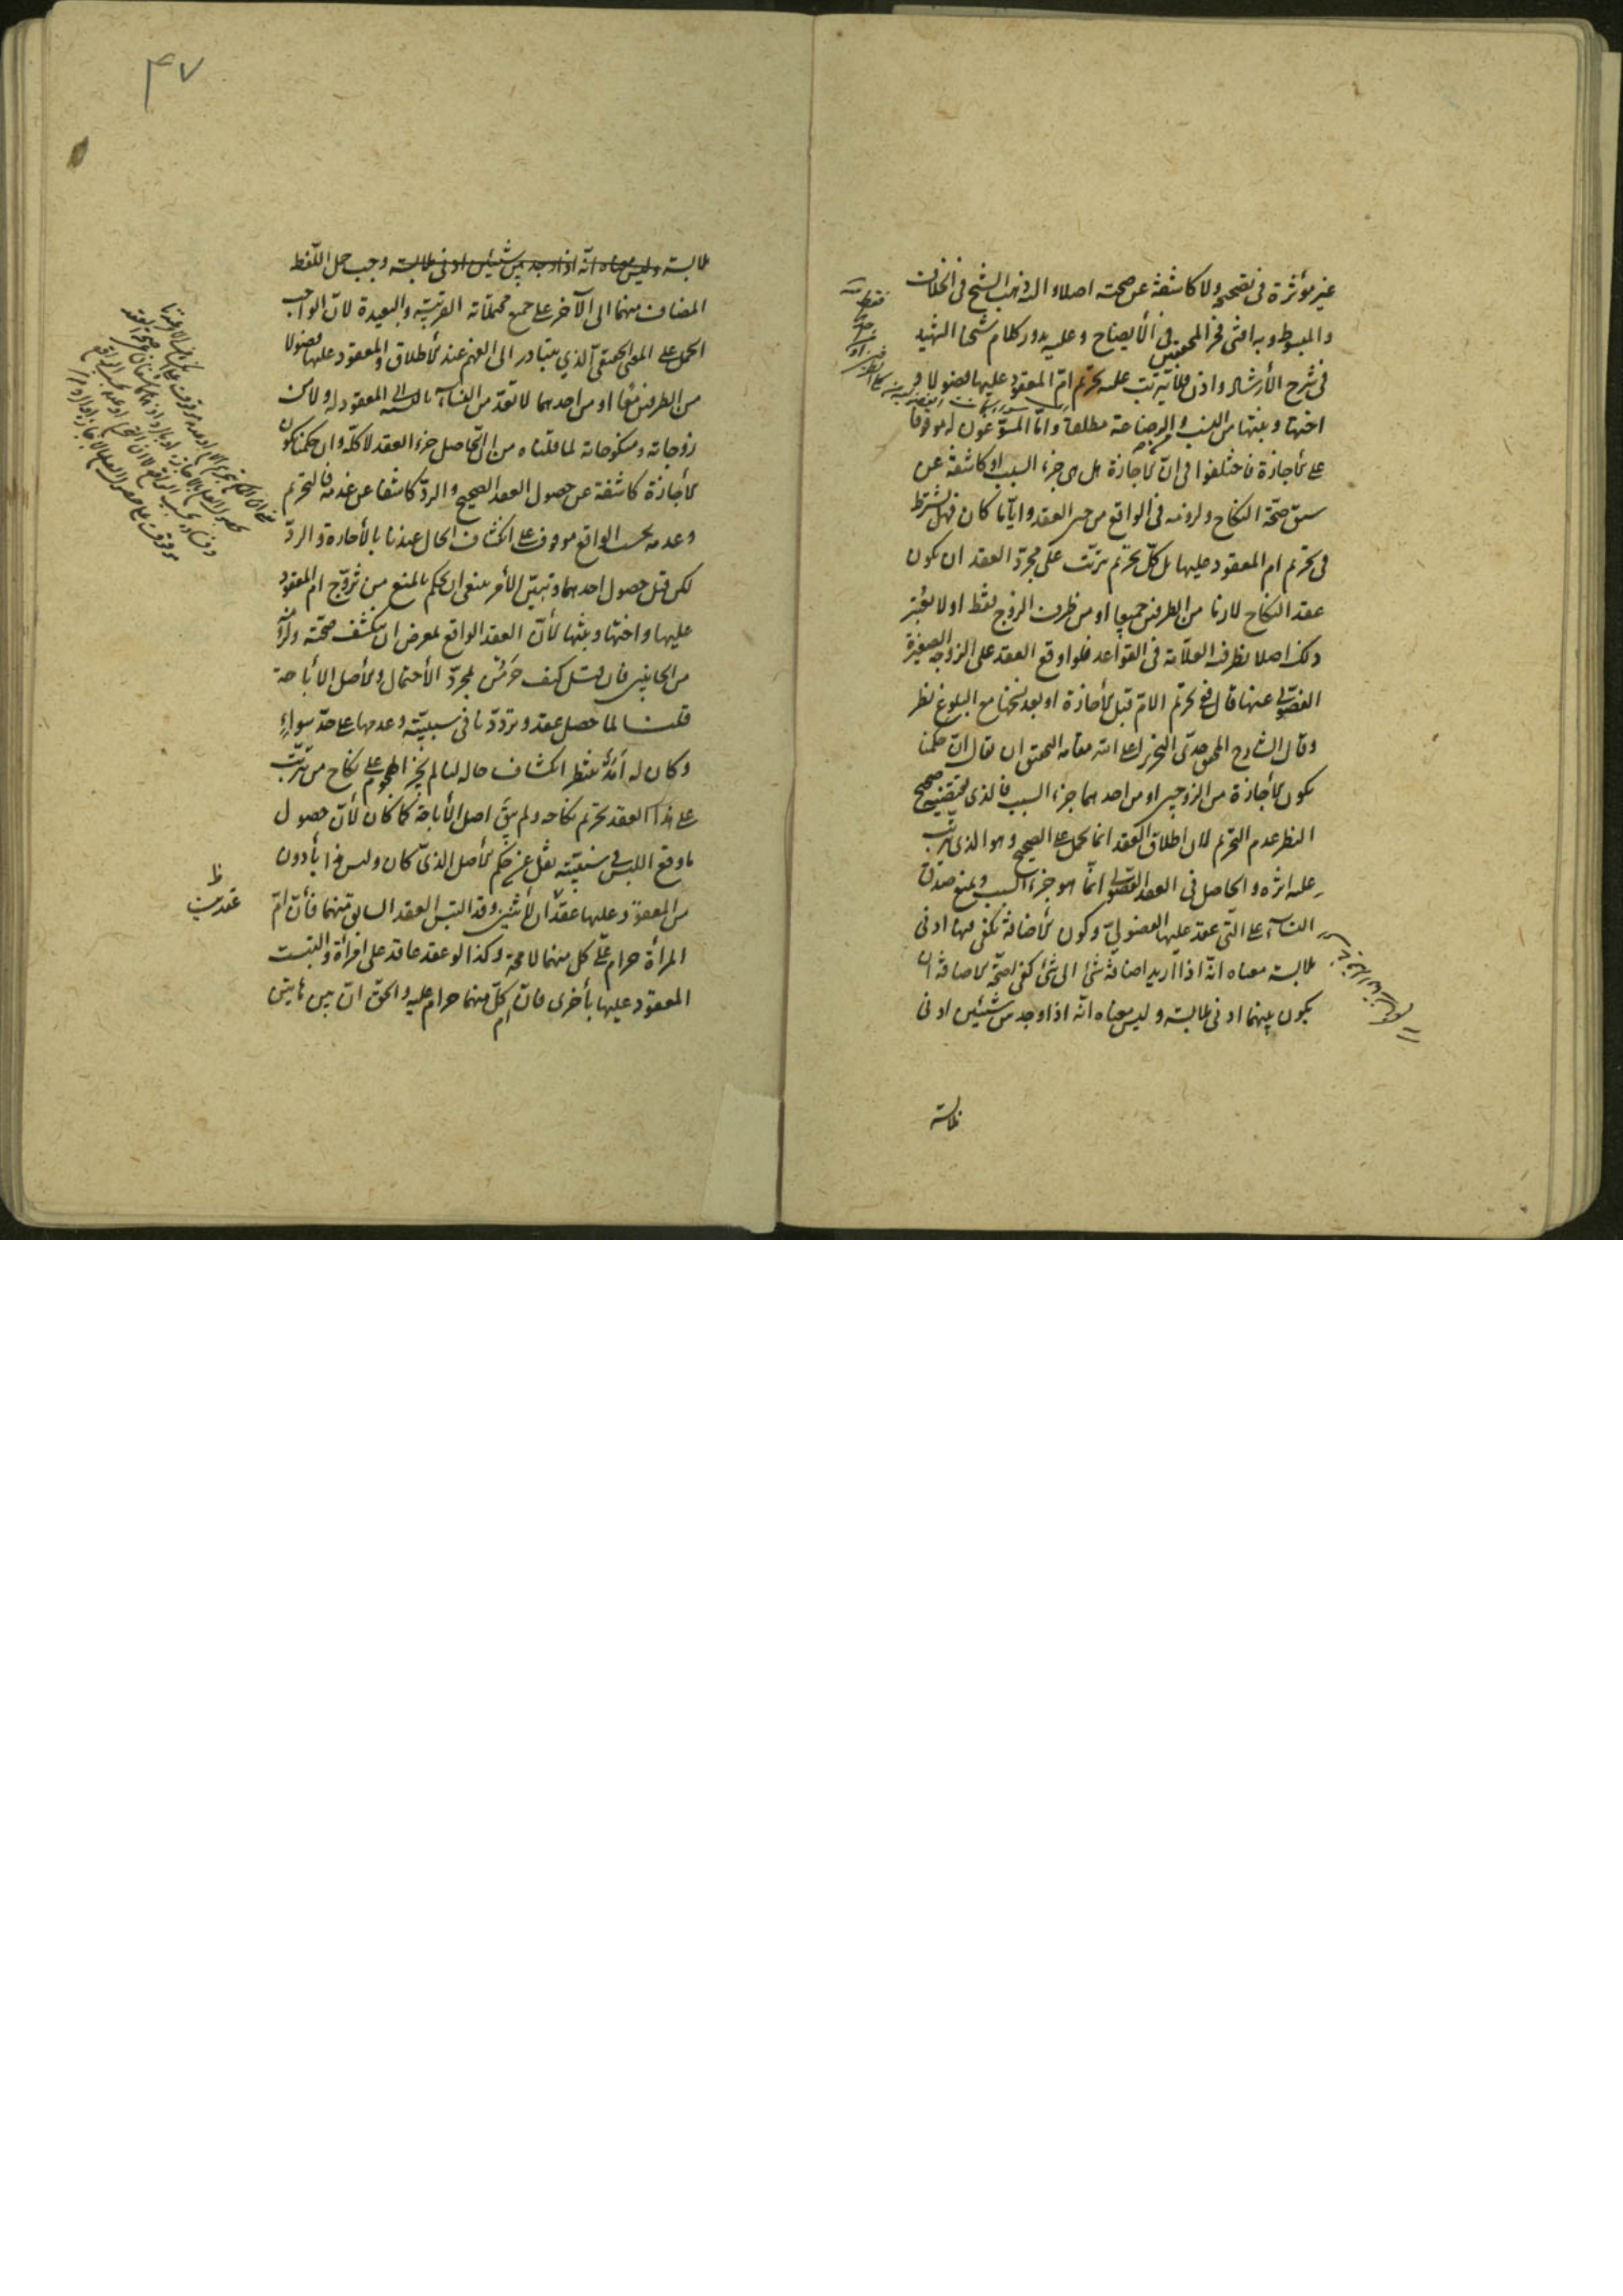 غير مؤثرة فى تصحيحه ولا كاشفة عن صحته اصلا واليه ذهب الشيخ فى الخلاف
والمبسوط وبه افتى فخر المحققين فى الأيضاح وعليه يدور كلام شيخنا الشهيد
فى شرح الأرشاد واذن فلا يترتب عليه تحريم امّ المعقود عليها فضولا و
اختها وبنتها من النسب والرضاعة مطلقا وامّا المسوّغون له موقوفا
على الأجازة فاختلفوا فى انّ الأجازة هل هى جزء السبب او كاشفة عن
سبق صحّة النكاح ولزومه فى الواقع من حين العقد وايّاما كان فهل يشترط
فى تحريم ام المعقود عليها بل كلّ تحريم يترتّب على مجرّد العقد ان يكون
عقد النكاح لازما من الطرفين جميعا او من طرف الزوج فقط او لا يعتبر
ذلك اصلا نظر فيه العلّامة فى القواعد فلو اوقع العقد على الزوجة الصغيرة
الفضولى عنها قال ففى تحريم الامّ قبل الأجازة او بعد فسخها مع البلوغ نظر
وقال الشارح المحقق جدّى النحرير اعلى الله مقامه التحقيق ان يقال ان حكمنا
بكون الأجازة من الزوجين او من احدهما جزء السبب فالذى يقتضيه صحيح
النظر عدم التحريم لان اطلاق العقد انما يحمل على الصحيح وهو الذى يترتّب
عليه اثره والحاصل فى العقد الفضولى انّما هو جزء السبب ويمنع صدق
النسآء على الّتى عقد عليها الفضوليّ وكون الأضافة يكفى فيها ادنى
ملابسة معناه انّه اذا اريد اضافة شئ الى شئ كفى لصحّة الأضافة ان
يكون بينهما ادنى ملابسة وليس معناه انّه اذا وجد من شيئين ادنى
ملابسة
۴۷
ملابسة وليس معناه انّه اذا وجد بين شيئين ادنى ملابسة وجب حمل اللّفظ
المضاف منهما الى الآخر على جميع محتملاته القريبة والبعيدة لانّ الواجب
الحمل على المعنى الحقيقى الّذي يتبادر الى الفهم عند الأطلاق والمعقود عليها فضولا
من الطرفين معًا او من احدهما لا تعدّ من النسآء بالنسبة الى المعقود له ولا من
زوجاته ومنكوحاته لما قلناه من انّ الحاصل جزء العقد لا كلّه وان حكمنا بكون
الأجازة كاشفة عن حصول العقد الصحيح والردّ كاشفا عن عدمه فالتحريم
وعدمه بحسب الواقع موقوف على انكشاف الحال عندنا بالأجازة والردّ
لكن قبل حصول احدهما وتبيّن الأمر ينبغى ان يحكم بالمنع من تزوّج ام المعقود
عليها واختها وبنتها لأنّ العقد الواقع بمعرض ان ينكشف صحّته ولزومه
من الجانبين فان قيل كيف حرمن لمجرّد الأحتمال والأصل الأباحة
قلنا لما حصل عقد وتردّدنا فى سببيّته وعدمها على حدّ سواءٍ
وكان له أمد ينتظر انكشاف حاله لنا لم يجز الهجوم على نكاح من يترتّب
على هذا العقد تحريم نكاحه ولم يبق اصل الأباحة كما كان لأنّ حصول
ما وقع اللبس فى سببيّته نقل عن حكم الأصل الذىّ كان وليس هذا بأدون
من المعقود عليها عقدان لأثنين وقد التبس العقد السابق منهما فأنّ امّ
المرأة حرام على كل منهما لا محة وكذا لو عقد عاقد على امرأة والتبست
المعقود عليها بأخرى فانّ امّ كلّ منهما حرام عليه والحقّ انّ بين هاتين
عقدين ظ